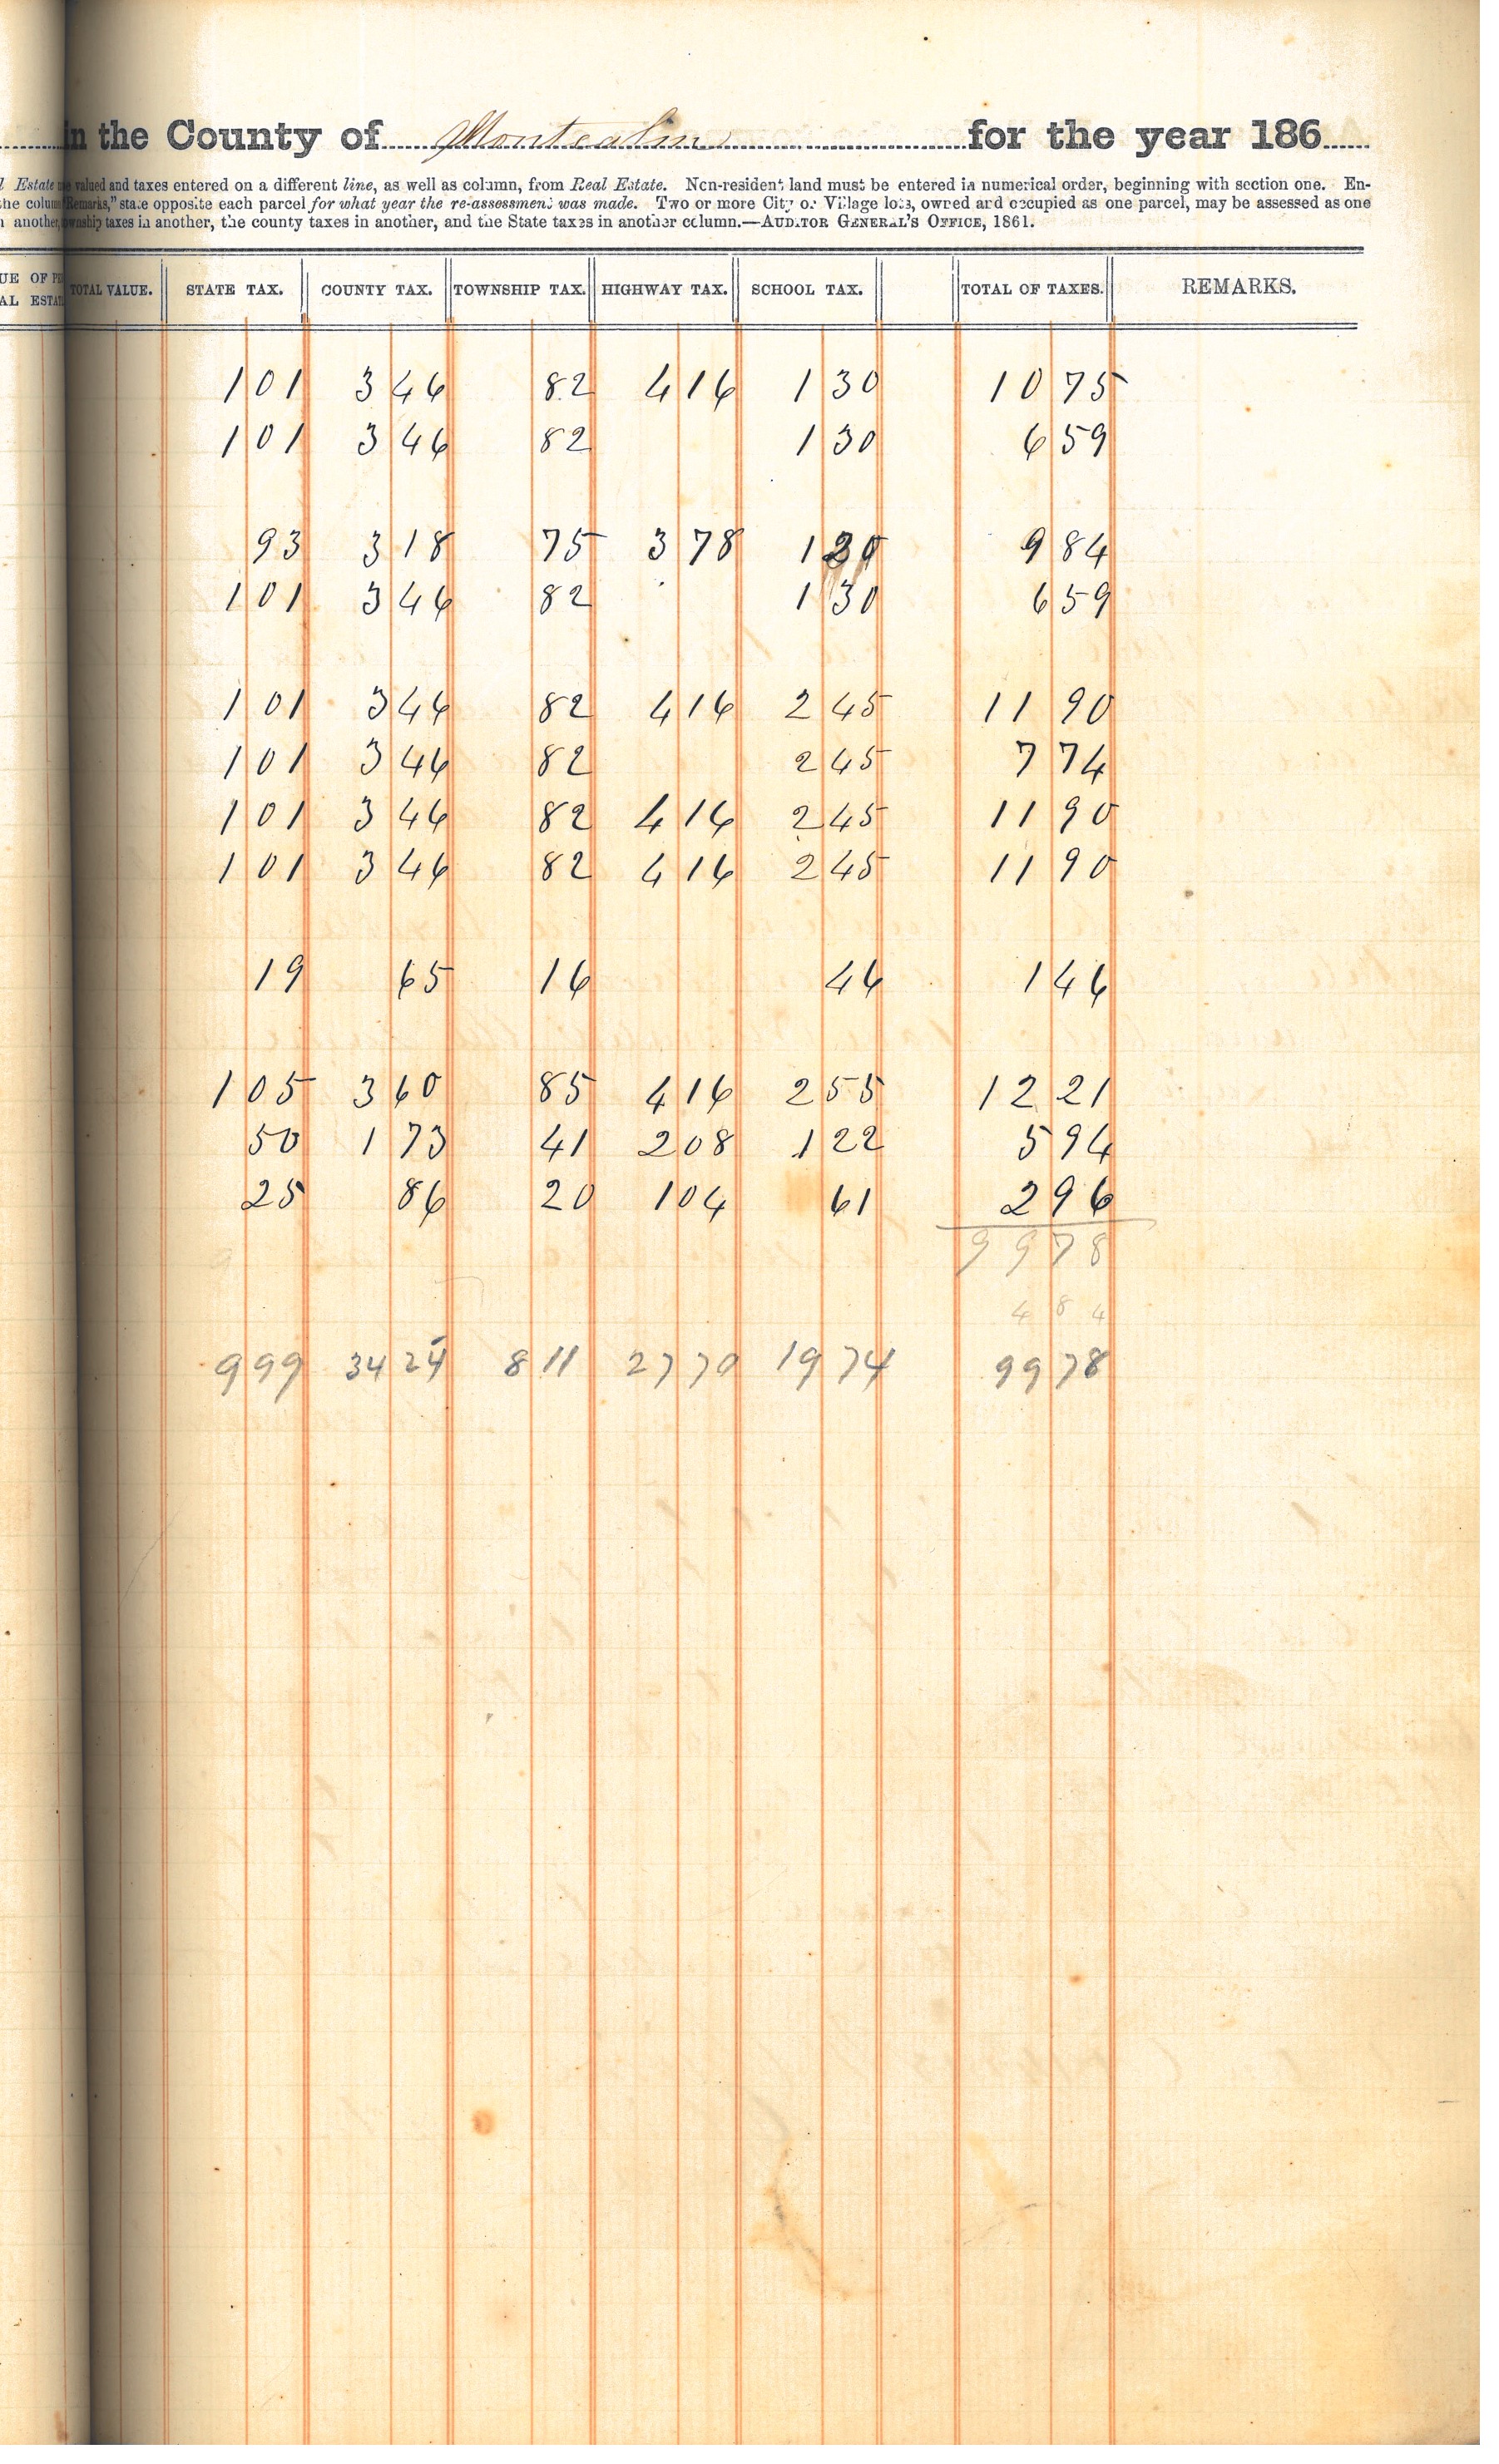 in the County of Montcalm for the year 186
l Estate valued and taxes entered on a different line, as well as column, from Real Estate. Non-resident land must be entered in numerical order, beginning with section one. En-
the colum Remarks," state opposite each parcel for what year the re-assessment was made. Two or more City or Village lots, owned and occupied as one parcel, may be assessed as one
another, township taxes in another, the county taxes in another, and the State taxes in another column.—AUDITOR GENERAL'S OFFICE, 1861.
UE OF PE
AL ESTAT
TOTAL VALUE. STATE TAX. COUNTY TAX. TOWNSHIP TAX. HIGHWAY TAX. SCHOOL TAX. TOTAL OF TAXES. REMARKS.
1 01 3 46 82 4 16 1 30 10 75
1 01 3 46 82 1 30 6 59
93 3 18 75 3 78 1 20 9 84
1 01 3 46 82 1 30 6 59
1 01 3 46 82 4 16 2 45 11 90
1 01 3 46 82 2 45 7 74
1 01 3 46 82 4 16 2 45 11 90
1 01 3 46 82 4 16 2 45 11 90
19 65 16 46 1 46
1 05 3 60 85 4 16 2 55 12 21
50 1 73 41 2 08 1 22 5 94
25 86 20 1 04 61 2 96
99 78
4 84
9 99 34 24 8 11 27 70 19 74 99 78